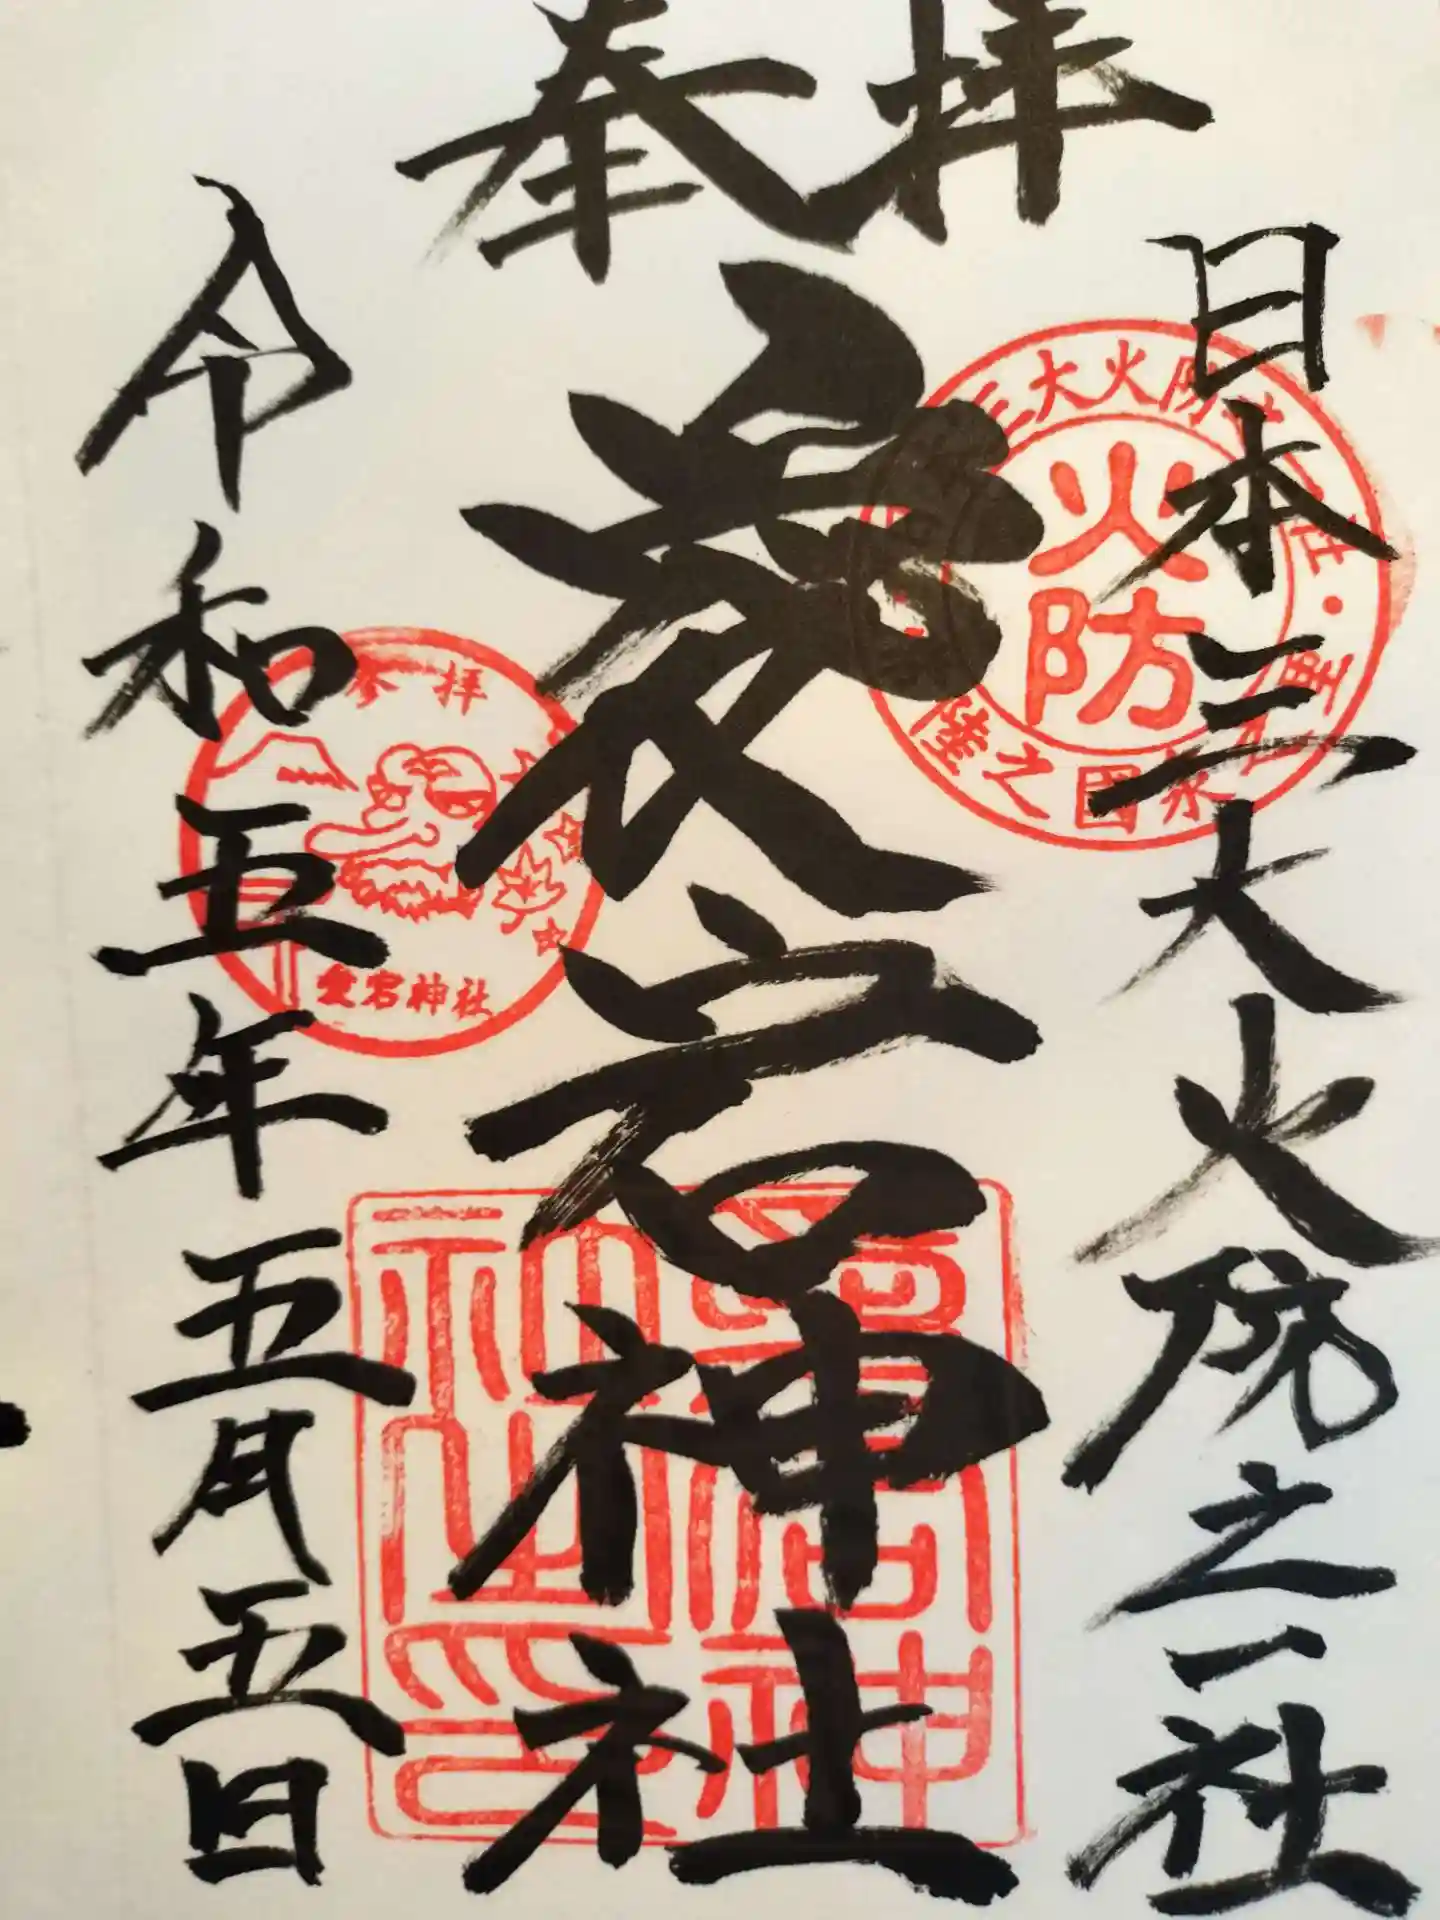 奉拝
日本三大火防之一社
愛宕神社
令和五年五月五日
三大火防
火防
陸之國
参拝
愛宕神社